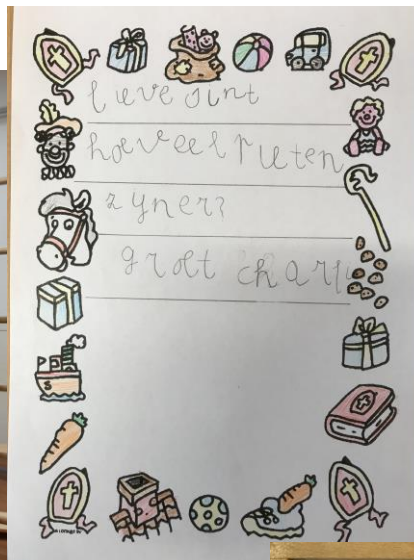 lieve sint
hoeveel Pieten
zyner?
groet charly